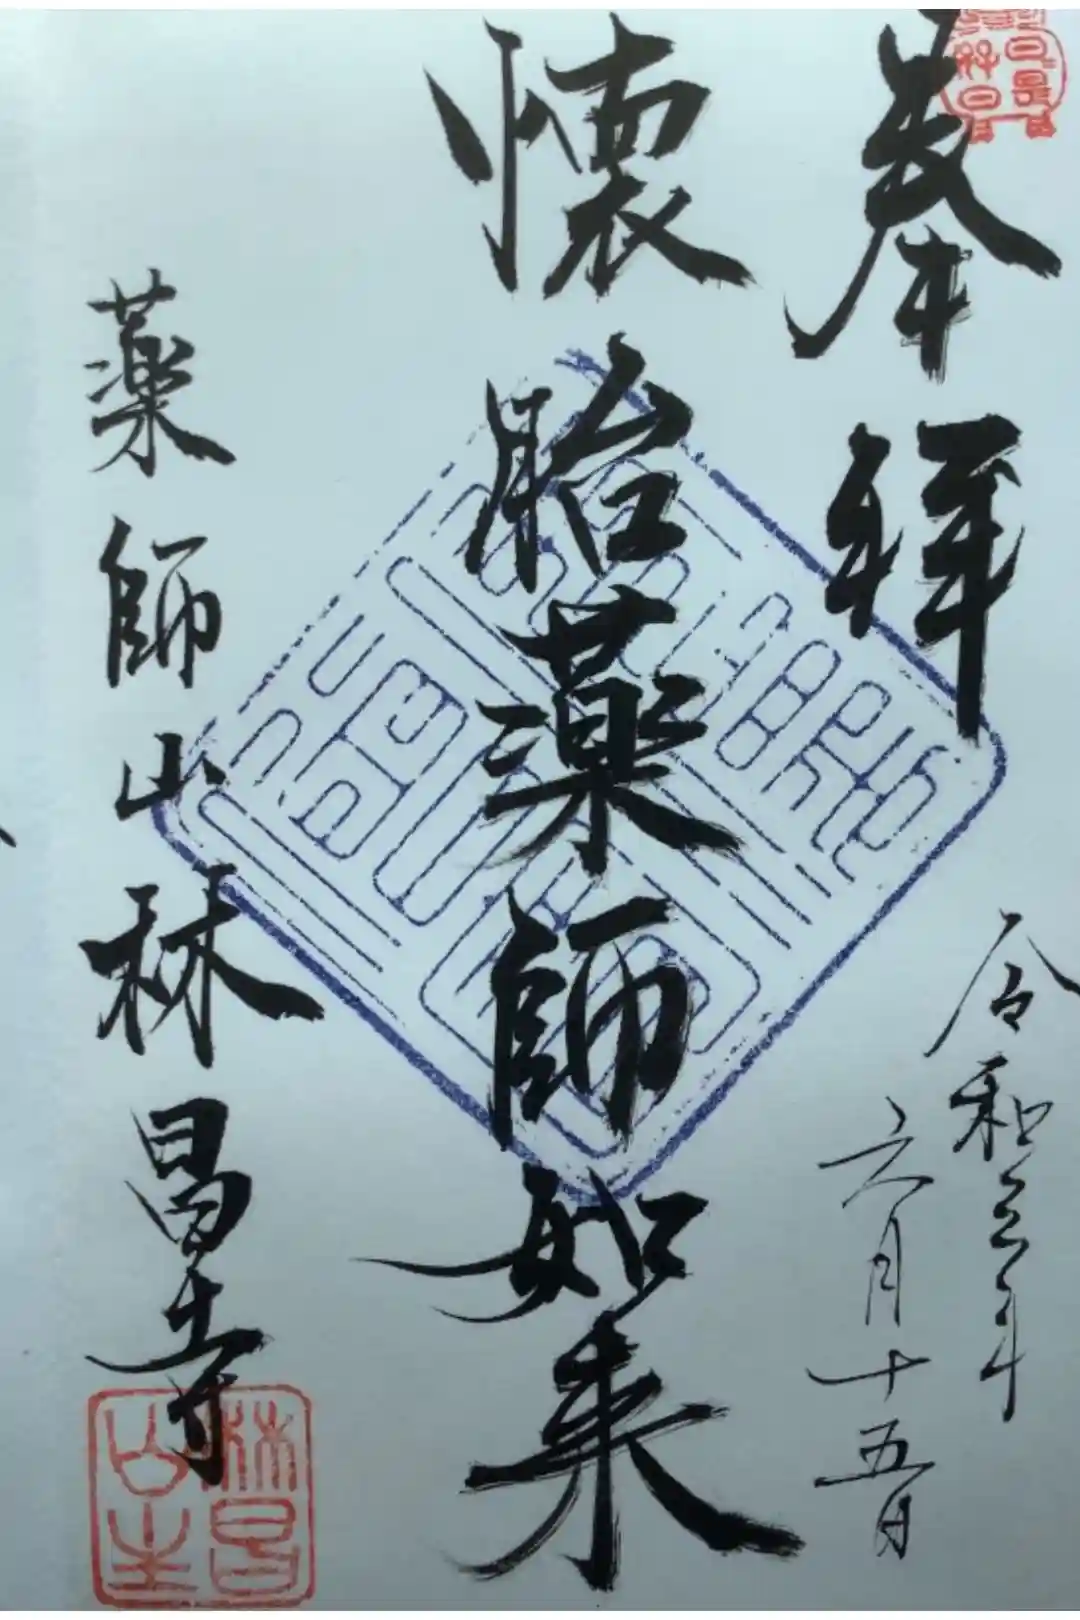 奉拝
令和三年
六月十五日
懐胎薬師如来
薬師山林昌寺